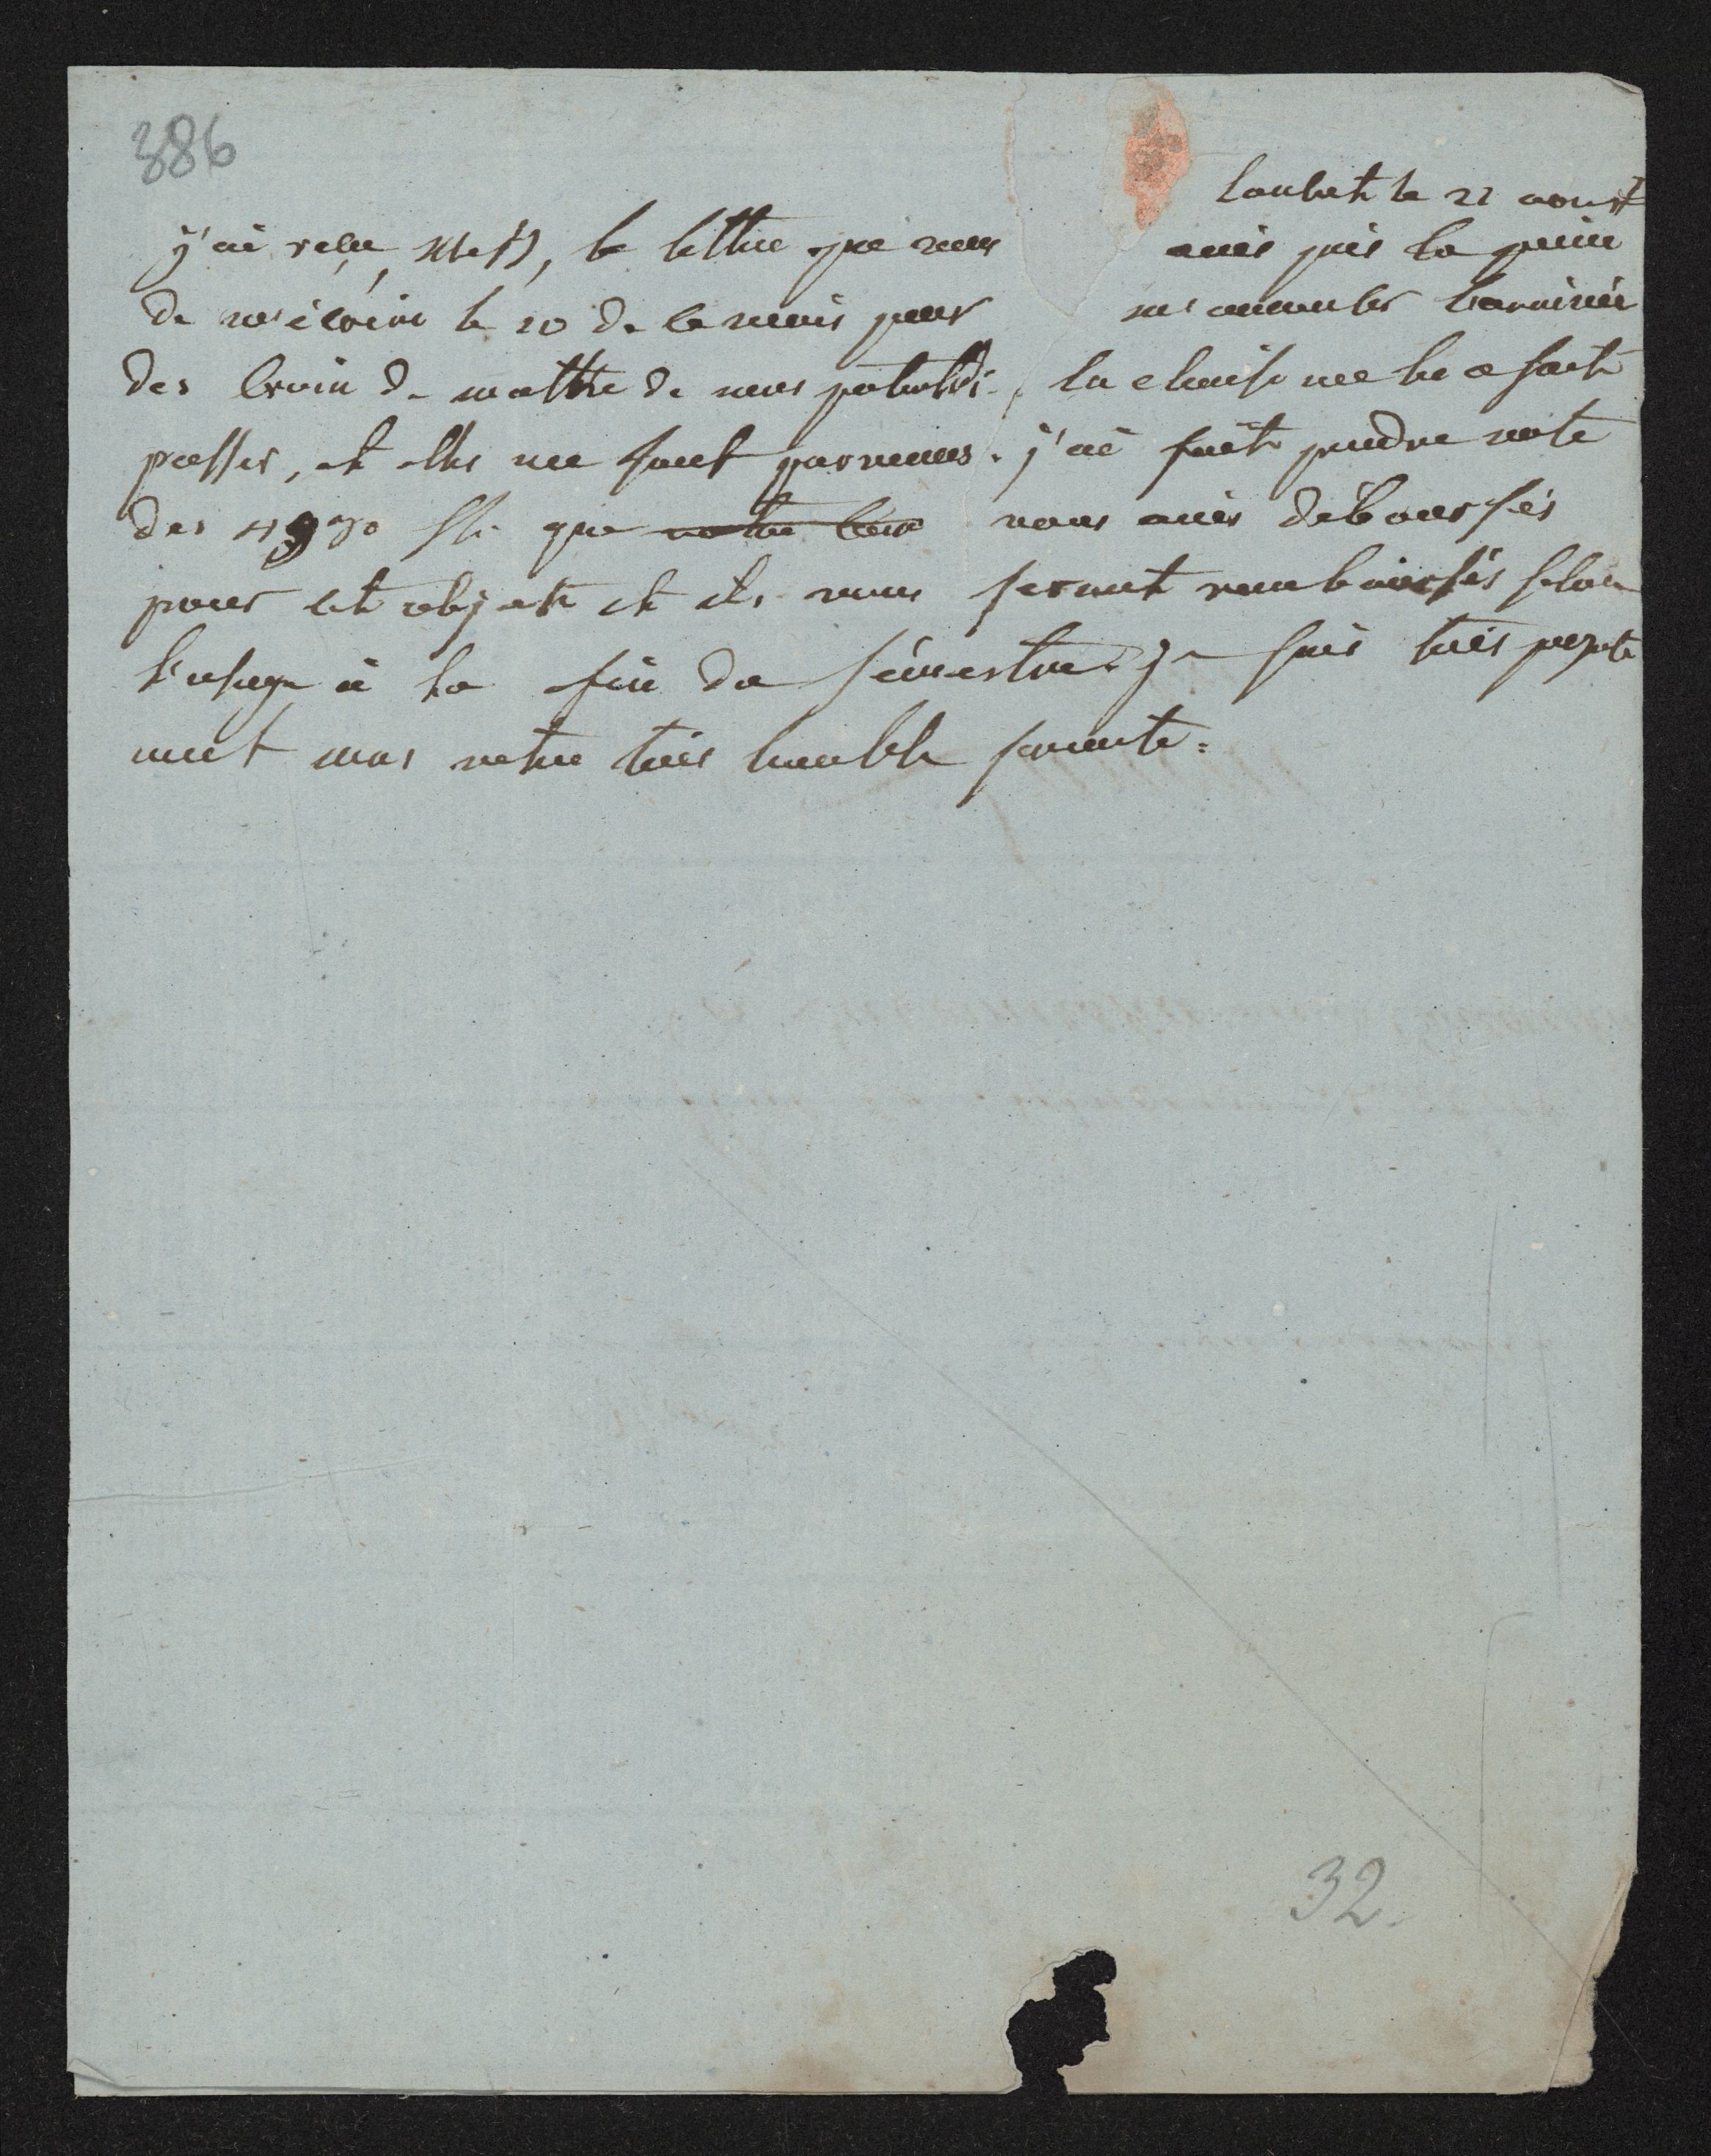 386
le 21 aoust
j'ai reçu, Mess, la lettre que vous avés pris la peine
de m'écrire le 20 de ce mois pour m'annoncer l'arrivée
des de de vous la chaise me les a fait
passer, et elles me sont parvenues. j'ai fait prendre note
des que vous avés déboursés
pour cet objet et ils vous seront remboursés selon
l'usage à la fin du sémestre. je suis très parfaite
ment mrs votre très humble servante.
32.